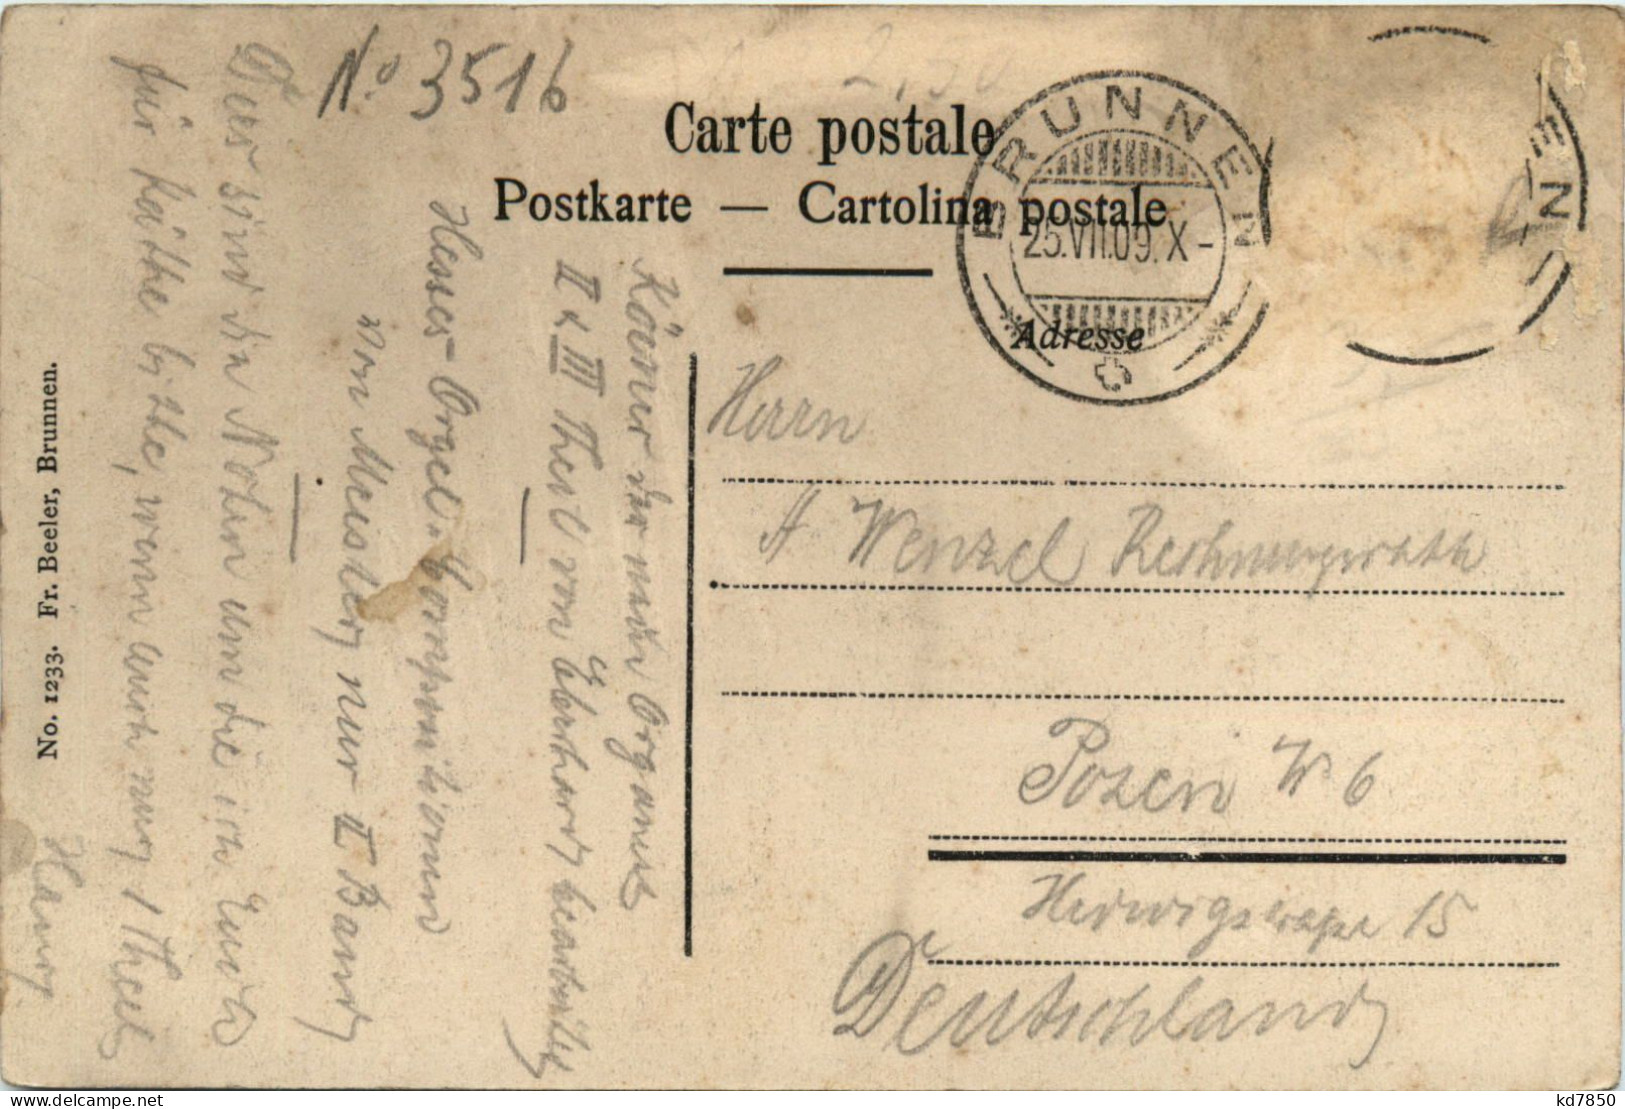 No 3516
2,50
Carte postale
Postkarte — Cartolina postale
BRUNNEN
25.VII.09.X-
EN
Adresse
Herrn
A Wenzel Rechnungsrath
Posen W 6
Hedwigstrasse 15
Deutschland
Körner der neue Organist
II & III Theil von Eberhardt bearbeitet
Hesses Orgel-Compositionen
von Meister nur II Band
Dies sind die Noten um die ich Euch
für Käthe bitte, wenn auch nur 1 Theil
Hans
No. 1233. Fr. Beeler, Brunnen.
kd7850